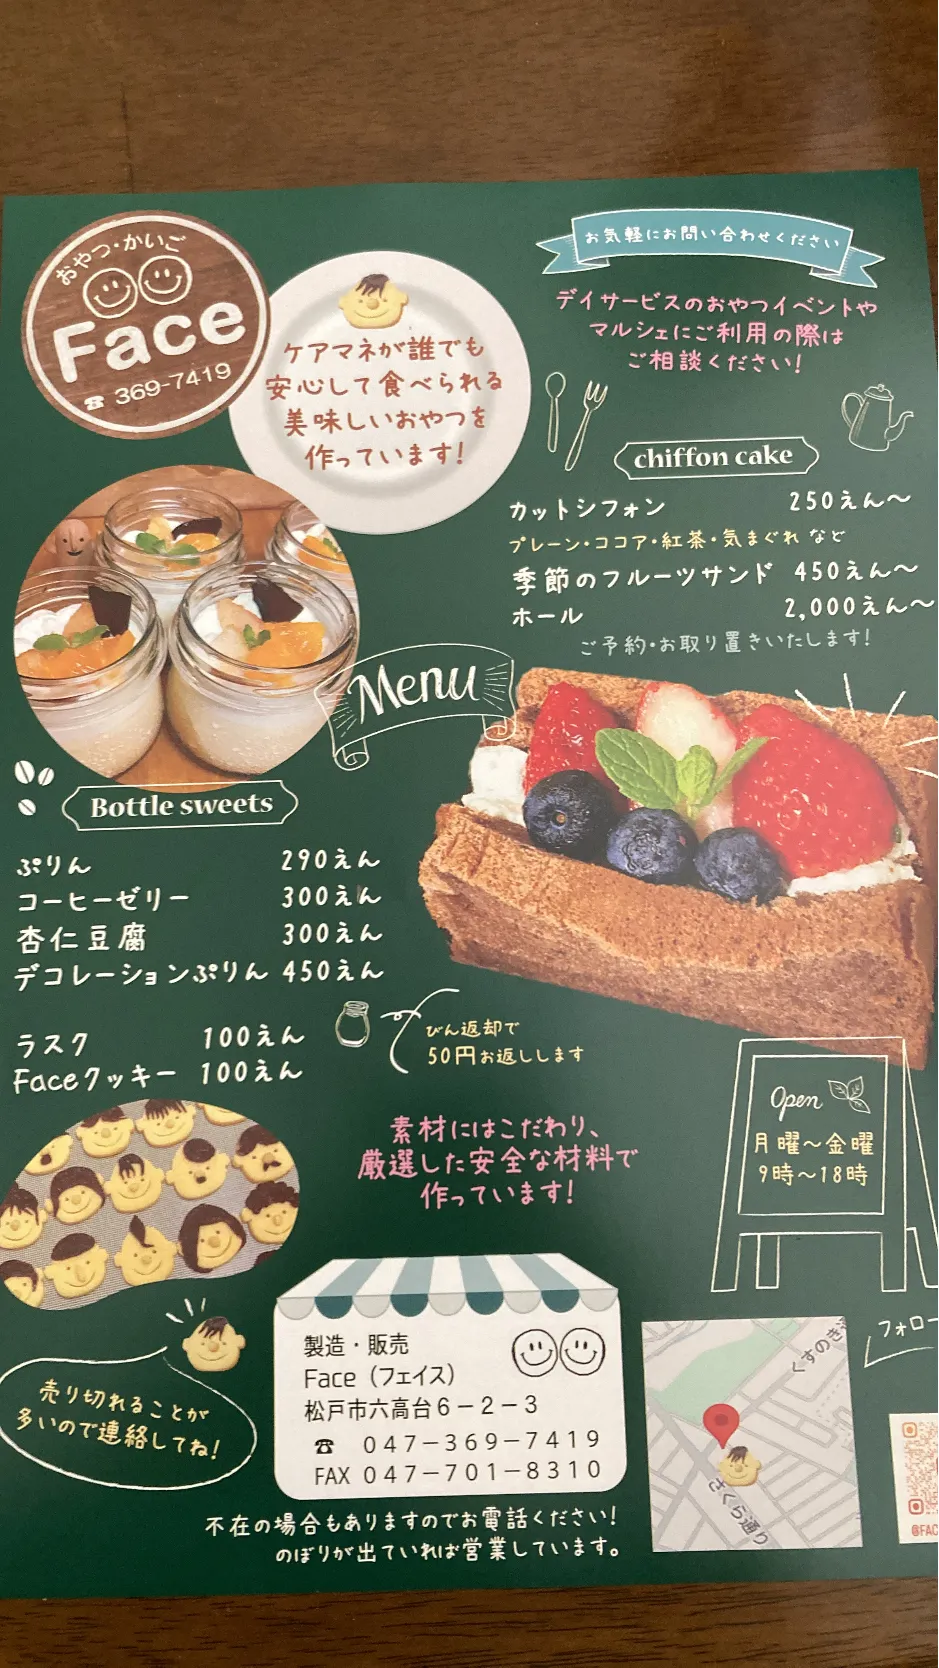 おやつ・かいご
Face
☎ 369-7419
ケアマネが誰でも
安心して食べられる
美味しいおやつを
作っています!
お気軽にお問い合わせください
デイサービスのおやつイベントや
マルシェにご利用の際は
ご相談ください!
chiffon cake
カットシフォン 250えん〜
プレーン・ココア・紅茶・気まぐれ など
季節のフルーツサンド 450えん〜
ホール 2,000えん〜
ご予約・お取り置きいたします!
Menu
Bottle sweets
ぷりん 290えん
コーヒーゼリー 300えん
杏仁豆腐 300えん
デコレーションぷりん 450えん
ラスク 100えん
Faceクッキー 100えん
びん返却で
50円お返しします
素材にはこだわり、
厳選した安全な材料で
作っています!
Open
月曜〜金曜
9時〜18時
売り切れることが
多いので連絡してね!
製造・販売
Face（フェイス）
松戸市六高台6－2－3
☎ 047－369－7419
FAX 047－701－8310
不在の場合もありますのでお電話ください!
のぼりが出ていれば営業しています。
くすのき
さくら通り
フォロー
@FAC